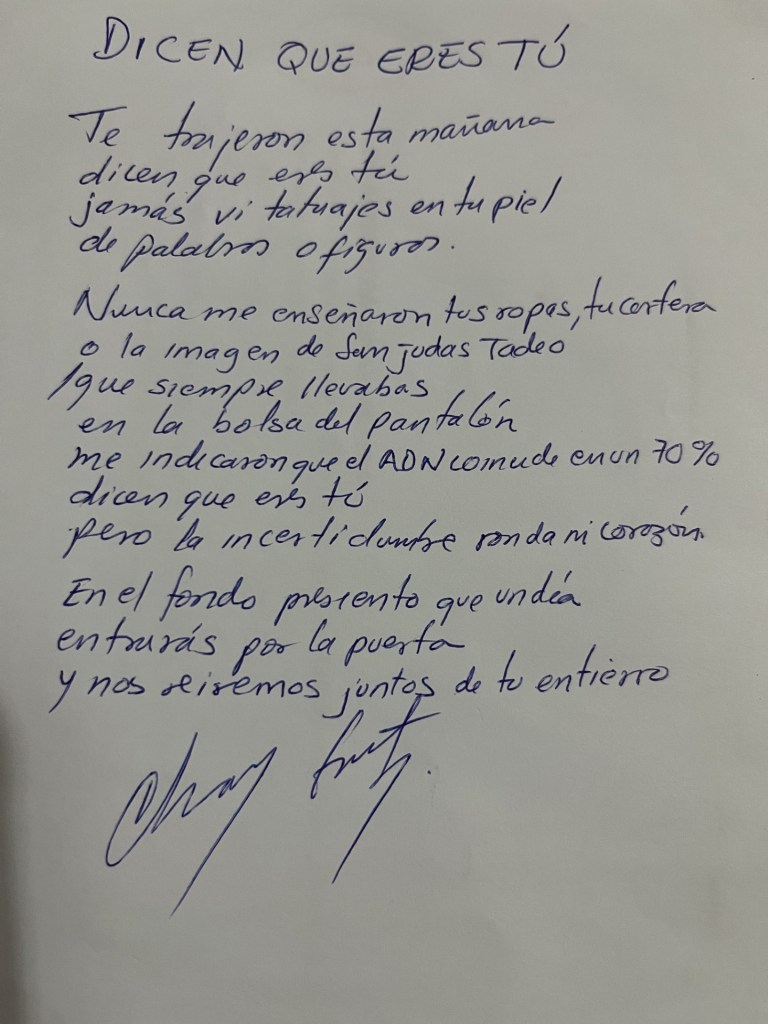 DICEN QUE ERES TÚ
Te trajeron esta mañana
dicen que eres tú
jamás vi tatuajes en tu piel
de palabras o figuras.
Nunca me enseñaron tus ropas, tu cartera
o la imagen de San Judas Tadeo
que siempre llevabas
en la bolsa del pantalón
me indicaron que el ADN coincide en un 70%
dicen que eres tú
pero la incertidumbre ronda mi corazón.
En el fondo presiento que un día
entrarás por la puerta
y nos reiremos juntos de tu entierro